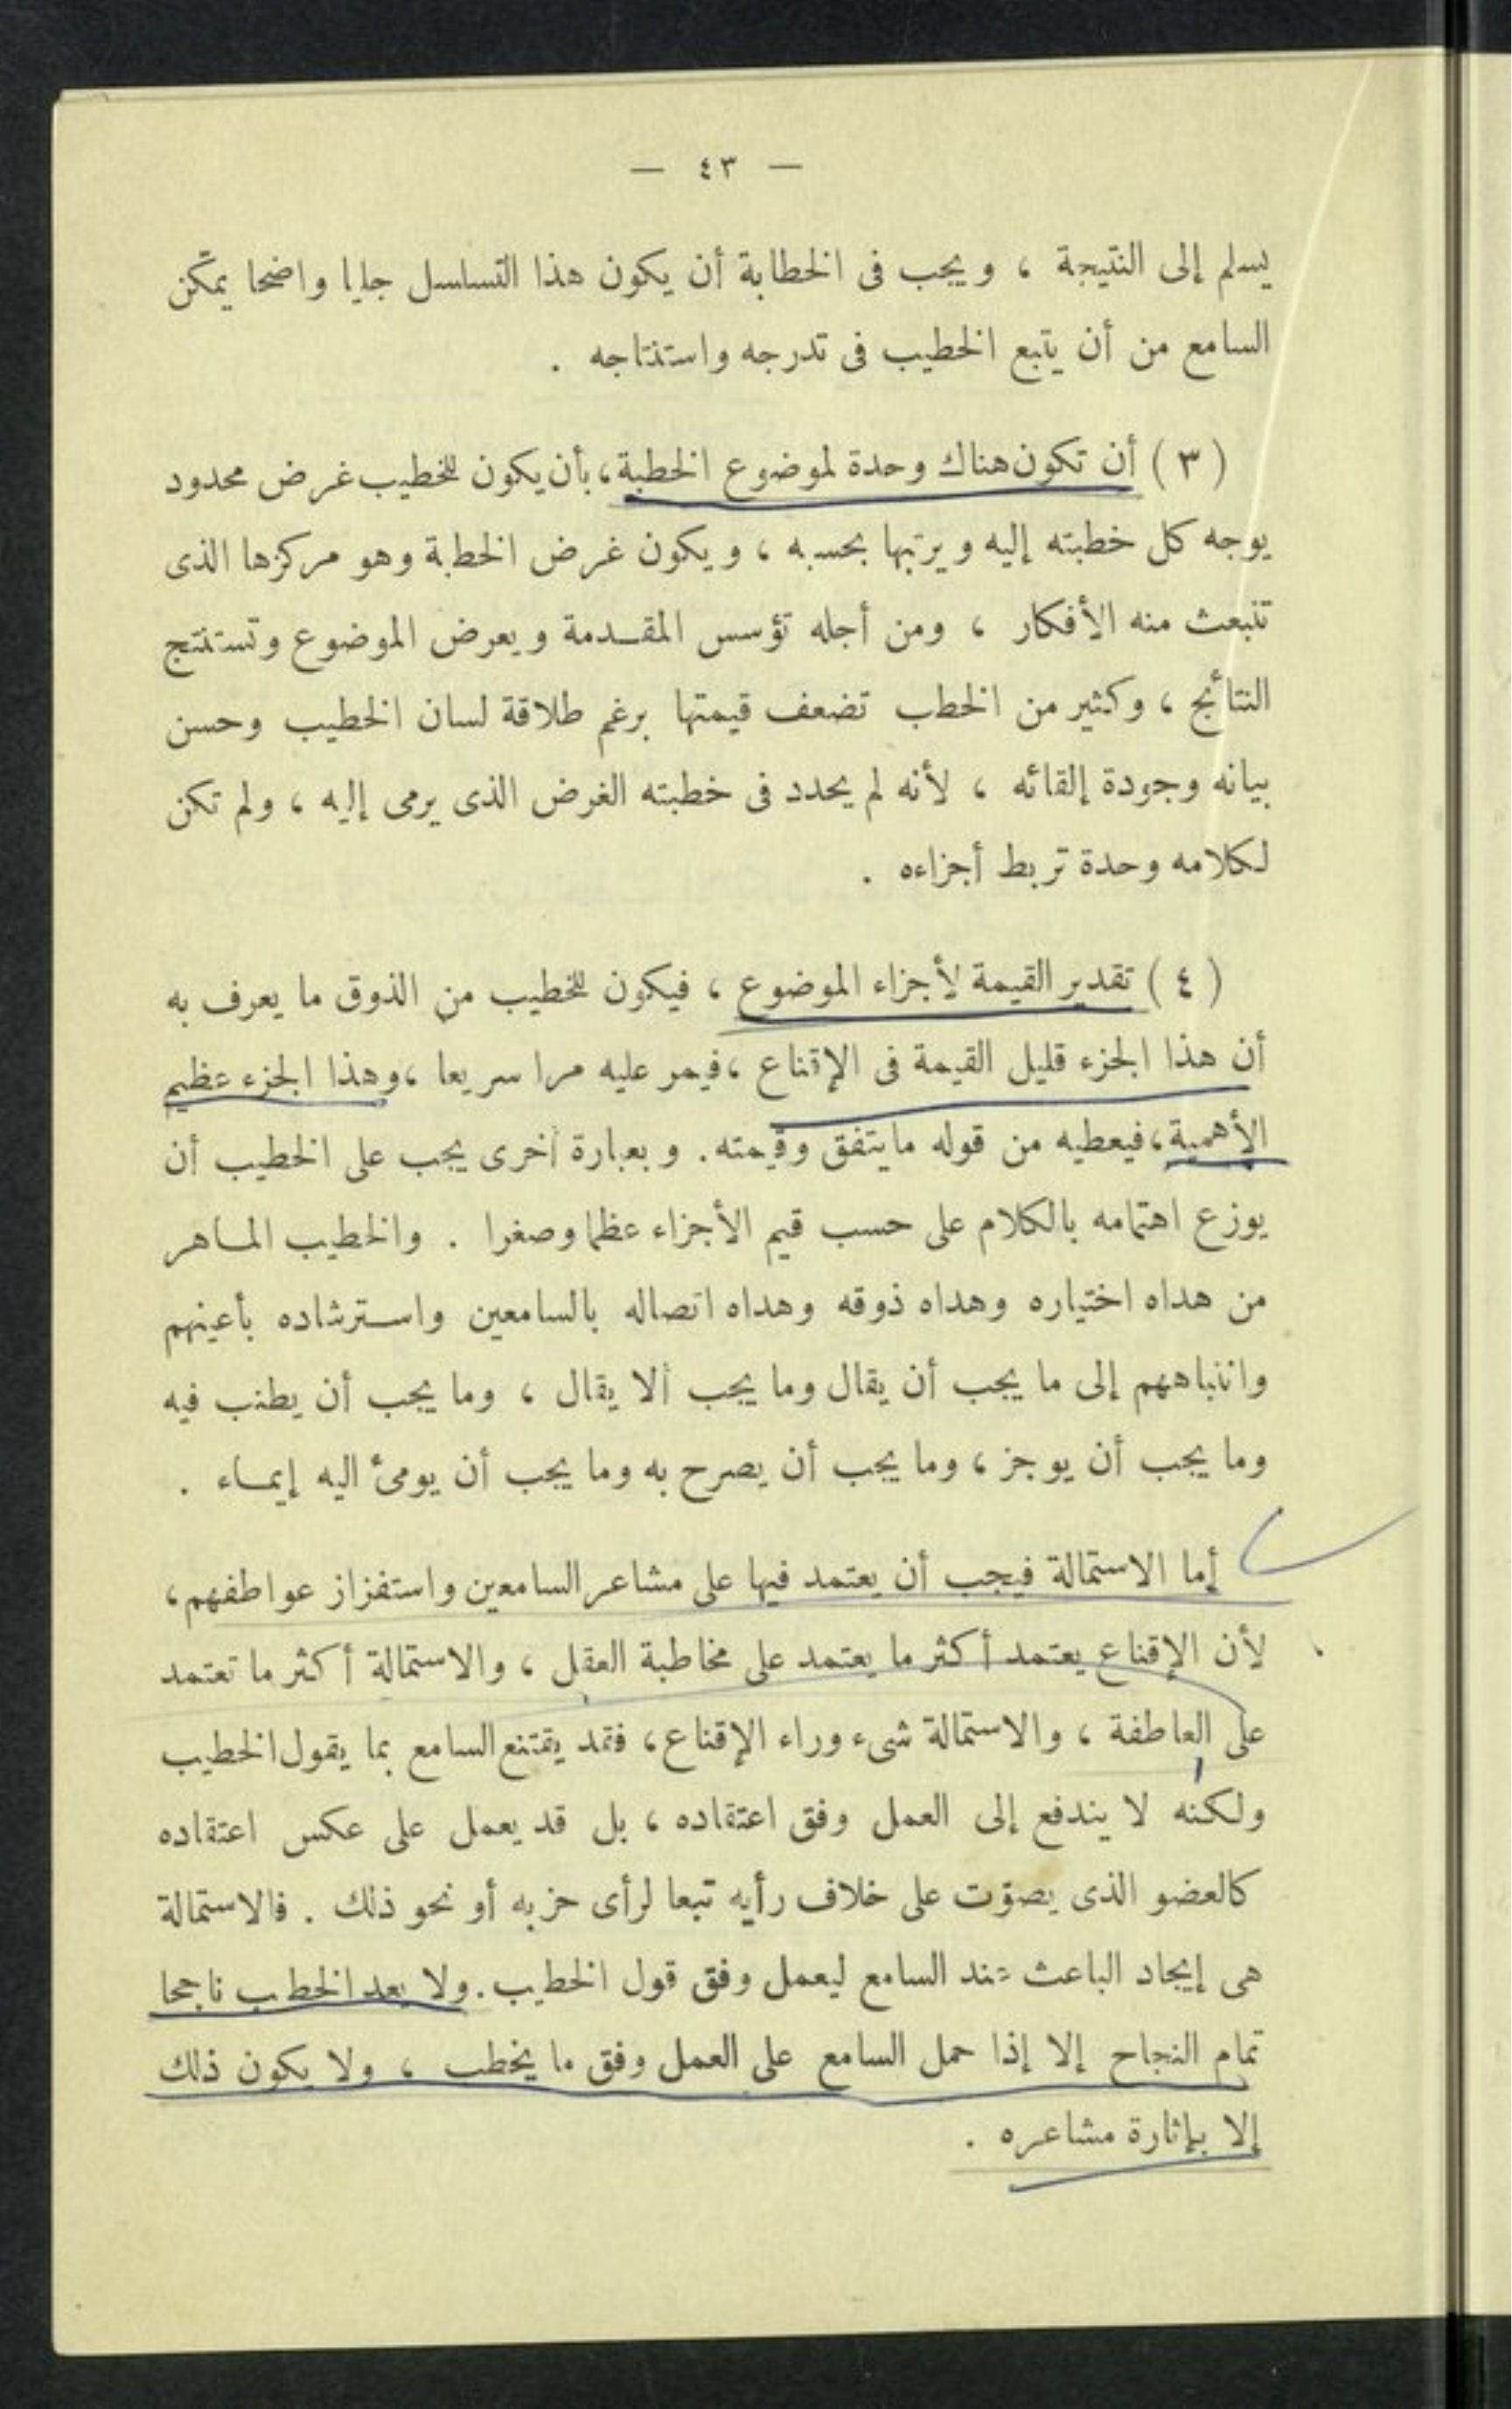 — ٤٣ —
يسلم إلى النتيجة ، ويجب فى الخطابة أن يكون هذا التسلسل جليا واضحا يمكّن
السامع من أن يتبع الخطيب فى تدرجه واستنتاجه .
( ٣ ) أن تكون هناك وحدة لموضوع الخطبة ، بأن يكون للخطيب غرض محدود
يوجه كل خطبته إليه ويرتبها بحسبه ، ويكون غرض الخطبة وهو مركزها الذى
تنبعث منه الأفكار ، ومن أجله تؤسس المقدمة ويعرض الموضوع وتستنتج
النتائج ، وكثير من الخطب تضعف قيمتها برغم طلاقة لسان الخطيب وحسن
بيانه وجودة إلقائه ، لأنه لم يحدد فى خطبته الغرض الذى يرمى إليه ، ولم تكن
لكلامه وحدة تربط أجزاءه .
( ٤ ) تقدير القيمة لأجزاء الموضوع ، فيكون للخطيب من الذوق ما يعرف به
أن هذا الجزء قليل القيمة فى الإقناع ، فيمر عليه مرا سريعا ، وهذا الجزء عظيم
الأهمية ، فيعطيه من قوله ما يتفق وقيمته . وبعبارة أخرى يجب على الخطيب أن
يوزع اهتمامه بالكلام على حسب قيم الأجزاء عظما وصغرا . والخطيب الماهر
من هداه اختياره وهداه ذوقه وهداه اتصاله بالسامعين واسترشاده بأعينهم
وانتباههم إلى ما يجب أن يقال وما يجب ألا يقال ، وما يجب أن يطنب فيه
وما يجب أن يوجز ، وما يجب أن يصرح به وما يجب أن يومئ اليه إيماء .
أما الاستمالة فيجب أن يعتمد فيها على مشاعر السامعين واستفزاز عواطفهم ،
لأن الإقناع يعتمد أكثر ما يعتمد على مخاطبة العقل ، والاستمالة أكثر ما تعتمد
على العاطفة ، والاستمالة شىء وراء الإقناع ، فقد يقتنع السامع بما يقول الخطيب
ولكنه لا يندفع إلى العمل وفق اعتقاده ، بل قد يعمل على عكس اعتقاده
كالعضو الذى يصوّت على خلاف رأيه تبعا لرأى حزبه أو نحو ذلك . فالاستمالة
هى إيجاد الباعث عند السامع ليعمل وفق قول الخطيب . ولا يعد الخطيب ناجحا
تمام النجاح إلا إذا حمل السامع على العمل وفق ما يخطب ، ولا يكون ذلك
إلا بإثارة مشاعره .